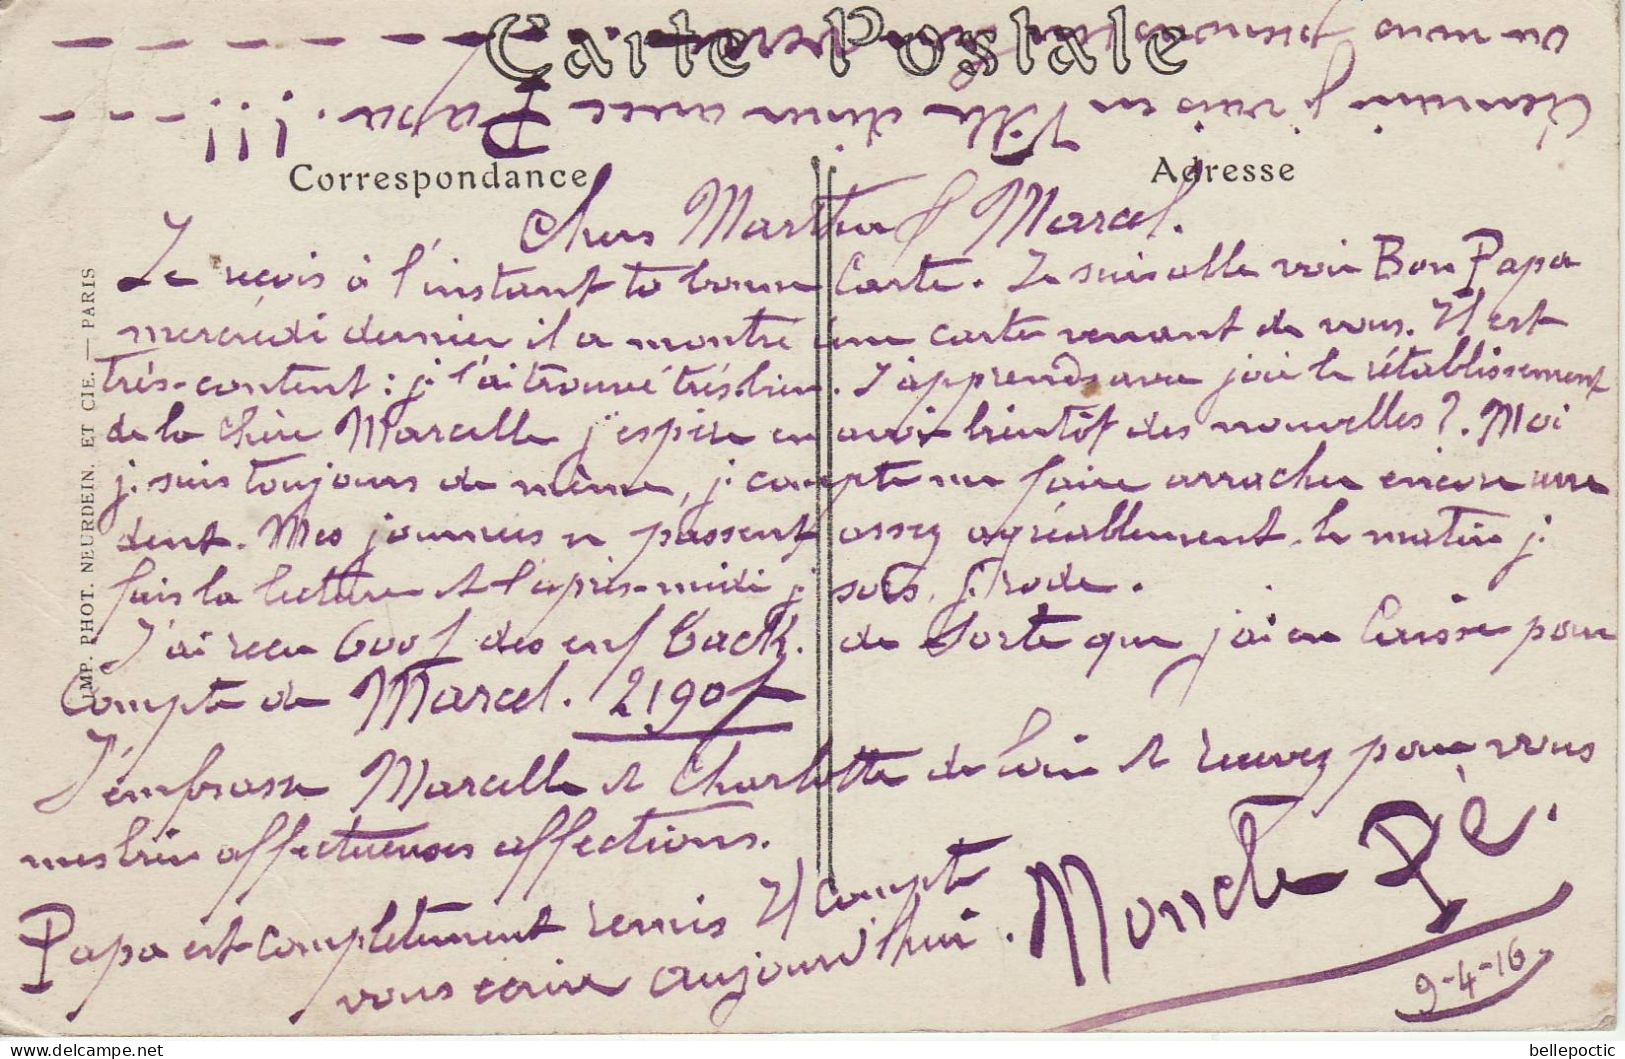 Carte Postale
Correspondance
Adresse
IMP. PHOT. NEURDEIN. ET CIE. — PARIS
Chers Martha & Marcel.
Je reçois à l'instant ta bonne Carte. Je suis allé voir Bon Papa
mercredi dernier il a montré une carte venant de vous. Il est
très-content : je l'ai trouvé très bien. J'apprends avec joie le rétablissement
de la chère Marcelle j'espère en avoir bientôt des nouvelles ?. Moi
je suis toujours de même, je compte me faire arracher encore une
dent. Mes journées se passent assez agréablement. le matin je
fais la lecture et l'après-midi je sors, je rode.
J'ai reçu 600f des enf de sorte que j'ai en Caisse pour
Compte de Marcel. 2190f
J'embrasse Marcelle & Charlotte de loin & recevez pour vous
mes bien affectueuses affections.
Papa est complètement remis Il compte
vous écrire aujourd'hui.
9-4-16
Demain j'vais en Ville diner avec Papa. !!! - - - -
ou nous